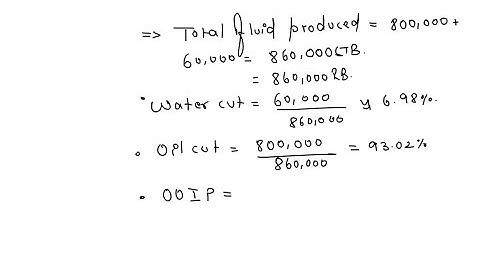 => Total fluid produced = 800,000 +
60,000 = 860,000 STB.
= 860,000 RB.
• Water cut = 60,000 / 860,000 y 6.98%.
• OPl cut = 800,000 / 860,000 = 93.02%
• OOIP =